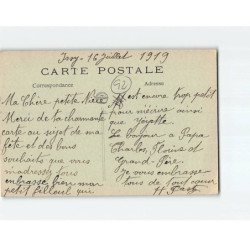 Issy - 16 Juillet 1919
CARTE POSTALE
Correspondance
Adresse
92
Ma Chère petite Nièce
Merci de ta charmante
carte au sujet de ma
fête et des bons
souhaits que vous
m'adressez tous
embrasse bien mon
petit filleul qui
est encore trop petit
pour m'écrire ainsi
que
Le bonjour à Papa
Charles, et
Grand-Père.
Je vous embrasse
tous de tout cœur